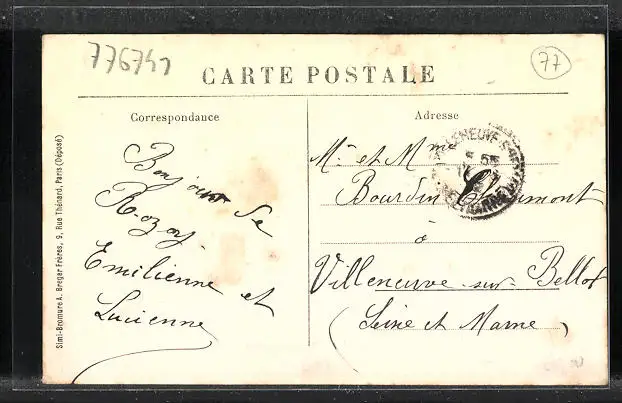 776741
77
CARTE POSTALE
Correspondance
Adresse
Bonjour de
Rozoy
Emilienne et
Lucienne
Mr et Mme
Bourdin Clairmont
à
Villeneuve-sur-Bellot
(Seine et Marne)
Simi-Bromure A. Breger Frères, 9, Rue Thénard, Paris (Déposé)